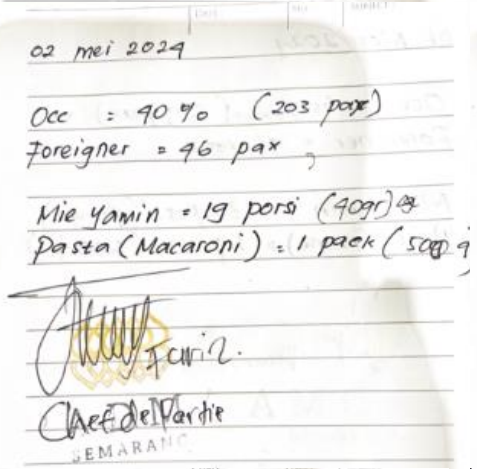 02 mei 2024
Occ : 40 % (203 pax)
Foreigner = 46 pax
Mie Yamin = 19 porsi (40gr)
Pasta (Macaroni) = 1 pack (500 g
Fariz.
Chef de Partie
SEMARANG